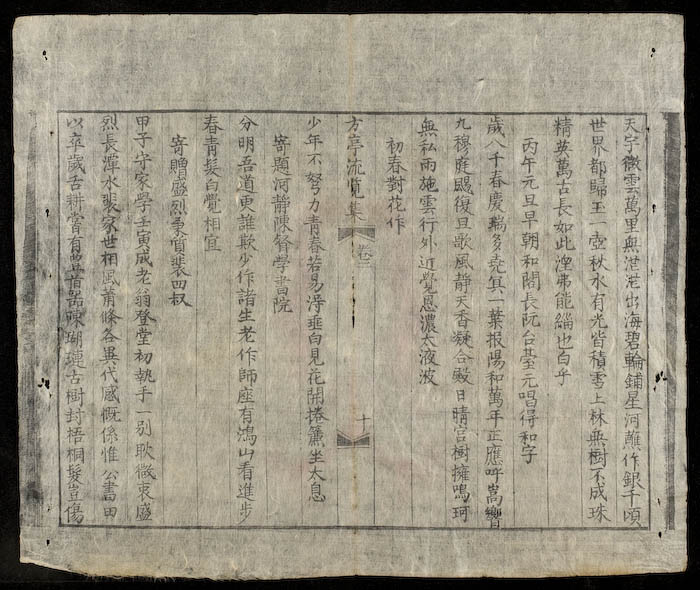 天宇微雲萬里無茫茫出海碧輪鋪星河蘸作銀千頃
世界都歸玉一壺秋水有光皆積雪上林無樹不成珠
精英萬古長如此涅弗能緇也白乎
丙午元旦早朝和閣長阮台臺元唱得和字
歲八千春慶瑞多堯蓂一葉报陽和萬年正應呼嵩響
九穆庭颺復旦歌風靜天香凝合殿日晴宮樹擁鳴珂
無私雨施雲行外近覺恩濃太液波
初春對花作
方亭流覽集 卷三 十
少年不努力青春若易淂垂白見花開捲簾坐太息
寄題河靜陳督學書院
分明吾道更誰欺少作諸生老作師座有鴻山看進步
春青髮白覺相宜
寄贈盛烈裴四叔
甲子守家學壬寅成老翁登堂初執手一别耿微衷盛
烈長潭水裴家世柤風蕭條各異代感慨係惟公書田
以卒歲舌耕嘗有瑚璉古樹封梧桐髮豈傷